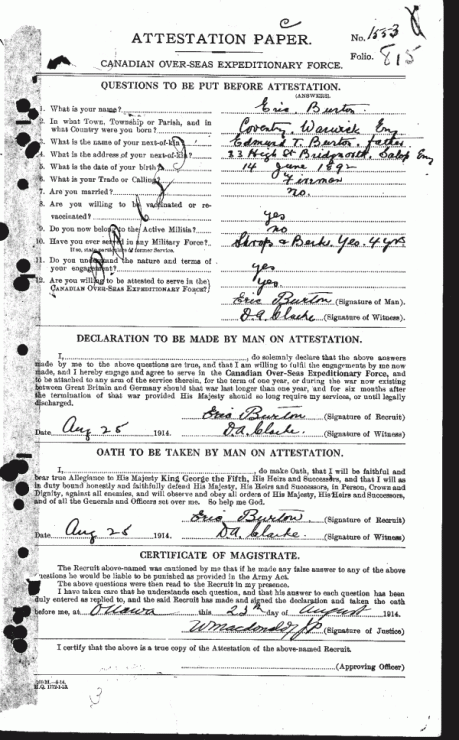 ATTESTATION PAPER.
No. 1533
Folio. 815
CANADIAN OVER-SEAS EXPEDITIONARY FORCE.
QUESTIONS TO BE PUT BEFORE ATTESTATION.
(ANSWERS).
1. What is your name? Eric Burton.
2. In what Town, Township or Parish, and in
what Country were you born? Coventry. Warwick Eng
3. What is the name of your next-of-kin? Edmund T. Burton. father
4. What is the address of your next-of-kin? 23 High St Bridgnorth. Salop Eng
5. What is the date of your birth? 14 June 1892
6. What is your Trade or Calling? Fireman
7. Are you married? no.
8. Are you willing to be vaccinated or re-
vaccinated? yes
9. Do you now belong to the Active Militia? no
10. Have you ever served in any Military Force? Yes. 4 yrs
If so, state particulars of former Service.
11. Do you understand the nature and terms of
your engagement? yes
12. Are you willing to be attested to serve in the
CANADIAN OVER-SEAS EXPEDITIONARY FORCE? yes.
Eric Burton (Signature of Man).
D.A. Clarke (Signature of Witness).
DECLARATION TO BE MADE BY MAN ON ATTESTATION.
I, , do solemnly declare that the above answers
made by me to the above questions are true, and that I am willing to fulfil the engagements by me now
made, and I hereby engage and agree to serve in the Canadian Over-Seas Expeditionary Force, and
to be attached to any arm of the service therein, for the term of one year, or during the war now existing
between Great Britain and Germany should that war last longer than one year, and for six months after
the termination of that war provided His Majesty should so long require my services, or until legally
discharged.
Eric Burton (Signature of Recruit)
Date Aug 25 1914. D.A. Clarke. (Signature of Witness)
OATH TO BE TAKEN BY MAN ON ATTESTATION.
I, , do make Oath, that I will be faithful and
bear true Allegiance to His Majesty King George the Fifth, His Heirs and Successors, and that I will as
in duty bound honestly and faithfully defend His Majesty, His Heirs and Successors, in Person, Crown and
Dignity, against all enemies, and will observe and obey all orders of His Majesty, His Heirs and Successors,
and of all the Generals and Officers set over me. So help me God.
Eric Burton. (Signature of Recruit)
Date Aug 25 1914. D.A. Clarke (Signature of Witness)
CERTIFICATE OF MAGISTRATE.
The Recruit above-named was cautioned by me that if he made any false answer to any of the above
questions he would be liable to be punished as provided in the Army Act.
The above questions were then read to the Recruit in my presence.
I have taken care that he understands each question, and that his answer to each question has been
duly entered as replied to, and the said Recruit has made and signed the declaration and taken the oath
before me, at Ottawa this 25th day of August 1914.
W Macdonald JP (Signature of Justice)
I certify that the above is a true copy of the Attestation of the above-named Recruit.
(Approving Officer)